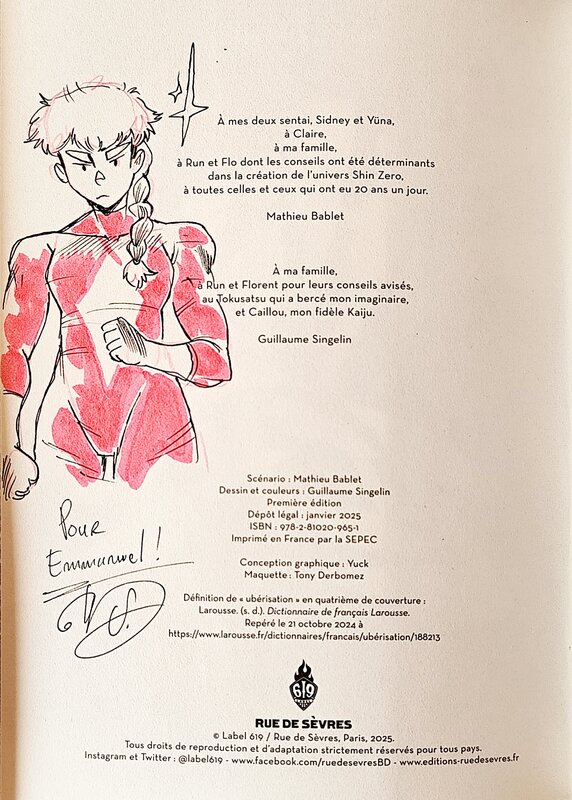 À mes deux sentai, Sidney et Yüna,
à Claire,
à ma famille,
à Run et Flo dont les conseils ont été déterminants
dans la création de l'univers Shin Zero,
à toutes celles et ceux qui ont eu 20 ans un jour.
Mathieu Bablet
À ma famille,
à Run et Florent pour leurs conseils avisés,
au Tokusatsu qui a bercé mon imaginaire,
et Caillou, mon fidèle Kaiju.
Guillaume Singelin
Scénario : Mathieu Bablet
Dessin et couleurs : Guillaume Singelin
Première édition
Dépôt légal : janvier 2025
ISBN : 978-2-81020-965-1
Imprimé en France par la SEPEC
Conception graphique : Yuck
Maquette : Tony Derbomez
Définition de « ubérisation » en quatrième de couverture :
Larousse. (s. d.). Dictionnaire de français Larousse.
Repéré le 21 octobre 2024 à
https://www.larousse.fr/dictionnaires/francais/ubérisation/188213
Pour
Emmanuel !
619
RUE DE SÈVRES
© Label 619 / Rue de Sèvres, Paris, 2025.
Tous droits de reproduction et d'adaptation strictement réservés pour tous pays.
Instagram et Twitter : @label619 - www.facebook.com/ruedesevresBD - www.editions-ruedesevres.fr